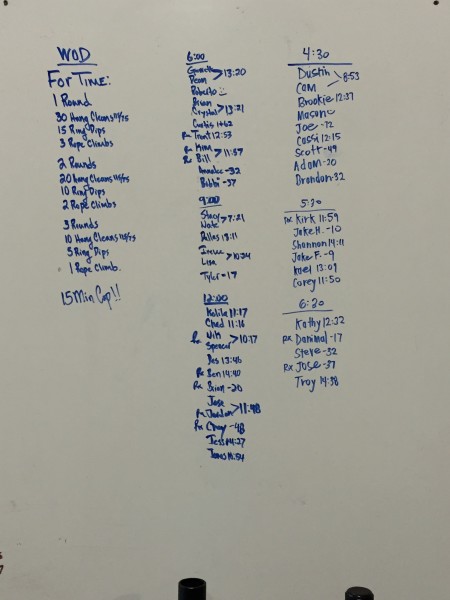 WOD
For Time:
1 Round
30 Hang Cleans 115/75
15 Ring Dips
3 Rope Climbs
2 Rounds
20 Hang Cleans 115/75
10 Ring Dips
2 Rope Climbs
3 Rounds
10 Hang Cleans 115/75
5 Ring Dips
1 Rope Climb.
15 Min Cap!!
6:00
Garrett
Dean >13:20
Roberto
Brian
Crystal >13:21
Curtis 1462
Rx Trent 12:53
Rx Kim
Rx Bill >11:57
Annalee -32
Bobbi -37
9:00
Stacy
Nate >7:21
Dallas 13:11
Irene
Lisa >10:24
Tyler -17
12:00
Kalib 11:17
Chad 11:16
Rx
Spencer >10:17
Des 13:46
Rx Ben 14:40
Rx Brian -20
Jose
Rx Jordan >11:48
Rx -48
Jess 14:27
James 14:54
4:30
Dustin
Cam >8:53
Brookie 12:37
Mason
Joe -72
Cassi 12:15
Scott -49
Adam -20
Brandon -32
5:30
Rx Kirk 11:59
Jake H. -10
Shannon 14:11
Jake F. -9
13:09
Corey 11:50
6:30
Kathy 12:32
Rx Danimal -17
Steve -32
Rx Jose -37
Troy 14:38